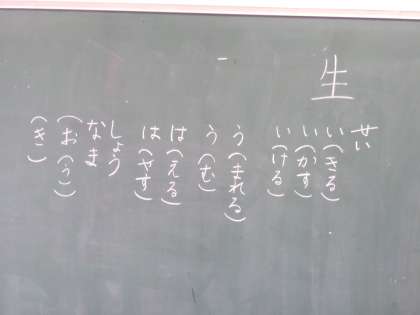 生
せい
い(きる)
い(かす)
い(ける)
う(まれる)
う(む)
は(える)
は(やす)
しょう
なま
(お(う))
(き)